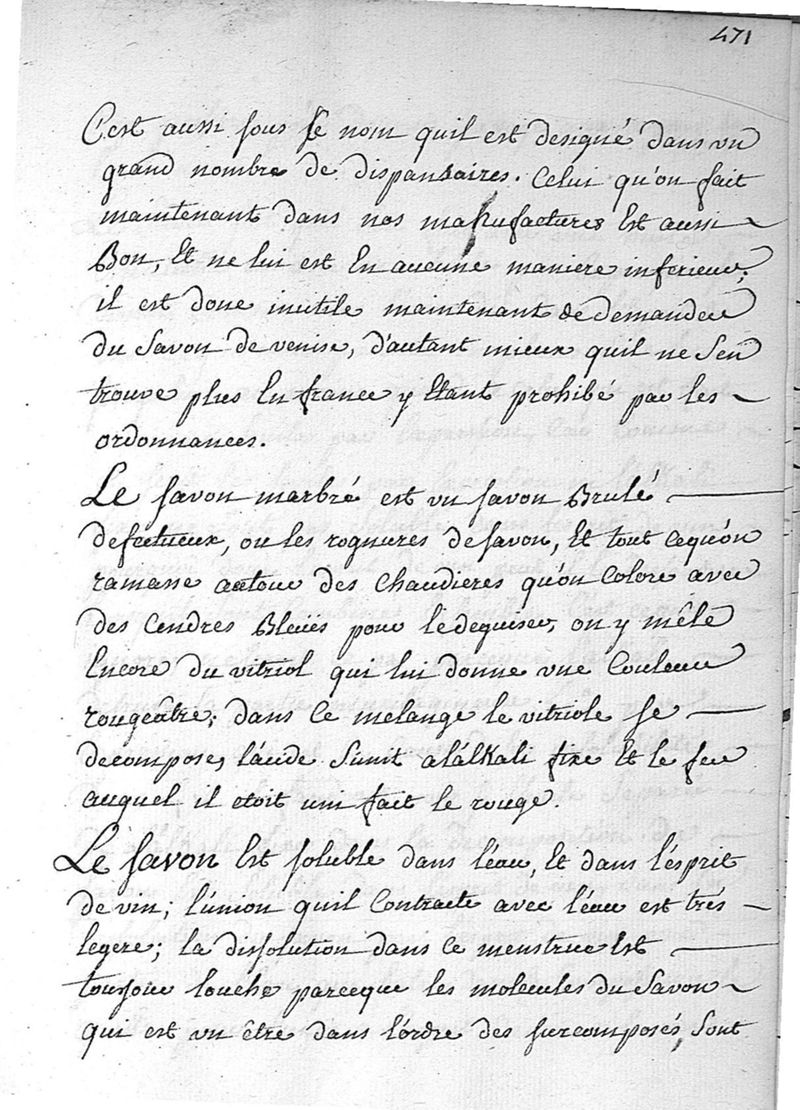 471
C'est aussi sous se nom quil est designé dans un
grand nombre de dispansaires. Celui qu'on fait
maintenant dans nos manufactures Est aussi
Bon, Et ne lui est En aucune maniere inferieur;
il est donc inutile maintenant de demander
du Savon de venise, d'autant mieux quil ne s'en
trouve plus En france y Etant prohibé par les
ordonnances.
Le savon marbré est un savon Brulé
defectueux, ou les rognures de savon, Et tout cequ'on
ramasse autour des chaudieres qu'on Colore avec
des Cendres Bleües pour le deguiser, on y mêle
Encore du vitriol qui lui donne une Couleur
rougeâtre; dans ce melange le vitriole se
decompose, l'acide S'unit a l'alkali fixe Et le fer
auquel il etoit uni fait le rouge.
Le savon Est soluble dans l'eau, Et dans l'esprit
de vin; l'union quil Contracte avec l'eau est trés
legere; la dissolution dans ce menstrue Est
toujour louche parceque les molecules du Savon
qui est un être dans l'ordre des surcomposés, Sont